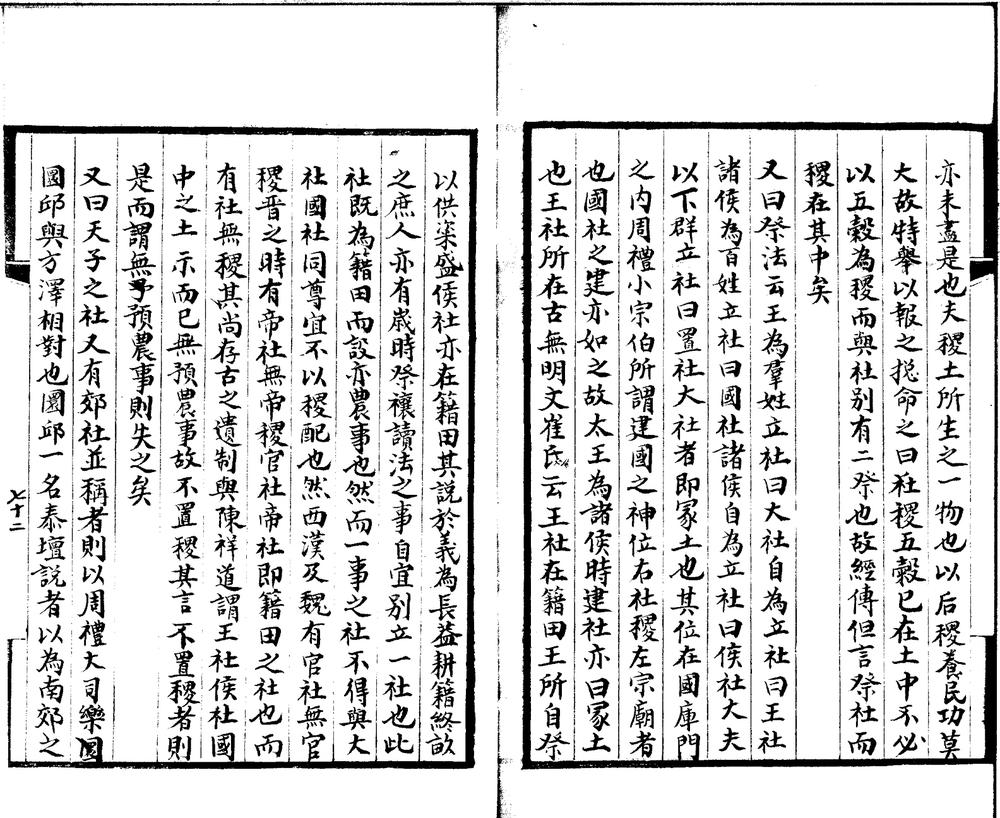 亦未盡是也夫稷土所生之一物也以后稷養民功莫
大故特舉以報之揔命之曰社稷五穀已在土中不必
以五穀為稷而與社别有二祭也故經傳但言祭社而
稷在其中矣
又曰祭法云王為羣姓立社曰大社自為立社曰王社
諸侯為百姓立社曰國社諸侯自為立社曰侯社大夫
以下群立社曰置社大社者即冢土也其位在國庫門
之内周禮小宗伯所謂建國之神位右社稷左宗廟者
也國社之建亦如之故太王為諸侯時建社亦曰冢土
也王社所在古無明文崔氏云王社在籍田王所自祭
以供粢盛侯社亦在籍田其説於義為長葢耕籍終畝
之庶人亦有嵗時祭禳讀法之事自宜别立一社也此
社既為籍田而設亦農事也然而一事之社不得與大
社國社同尊宜不以稷配也然西漢及魏有官社無官
稷晋之時有帝社無帝稷官社帝社即籍田之社也而
有社無稷其尚存古之遺制與陳祥道謂王社侯社國
中之土示而已無預農事故不置稷其言不置稷者則
是而謂無予預農事則失之矣
又曰天子之社又有郊社並稱者則以周禮大司樂圜
圜邱與方澤相對也圜邱一名泰壇説者以為南郊之
七十二